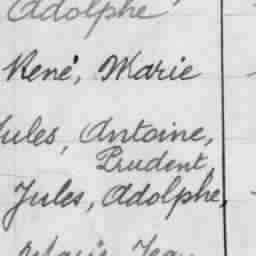 Adolphe
René, Marie
Jules, Antoine,
Prudent,
Jules, Adolphe,
Jean